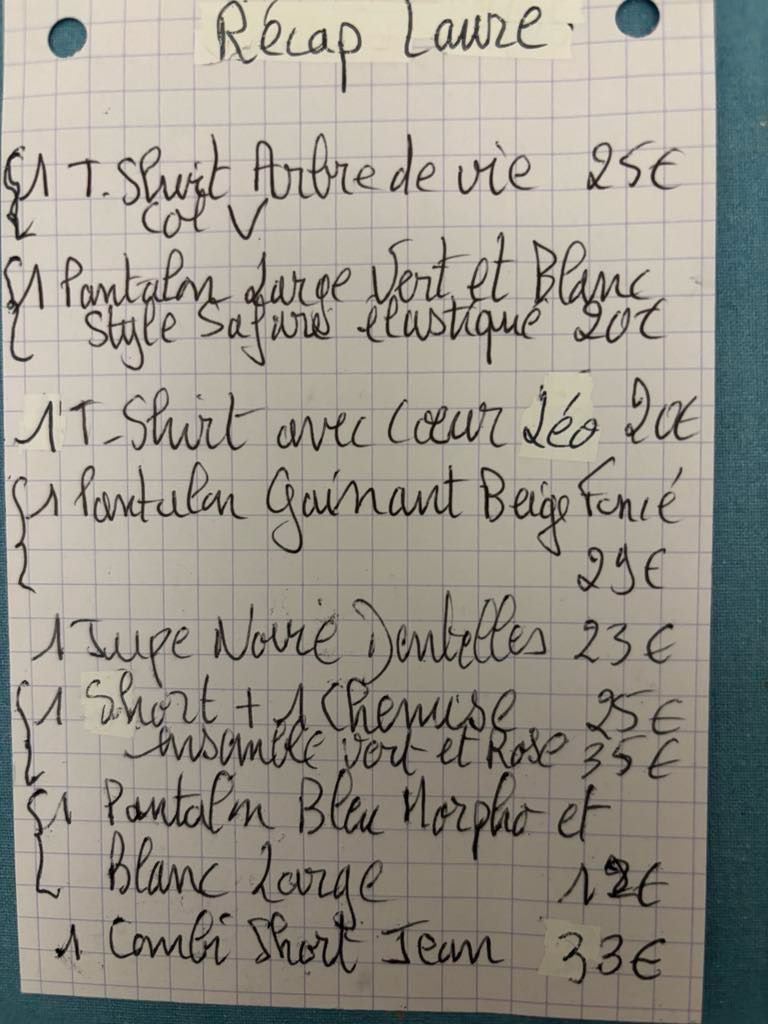 Récap Laure.
{1 T. Shirt Arbre de vie 25€
Col V
{1 Pantalon Large Vert et Blanc
Style Safari élastiqué 20€
1 T-Shirt avec Cœur Léo 20€
{1 Pantalon Gainant Beige Foncé
29€
1 Jupe Noire Dentelles 23€
{1 Short + 1 Chemise 25€
ensemble Vert et Rose 35€
{1 Pantalon Bleu Morpho et
Blanc Large
1 Combi Short Jean 33€